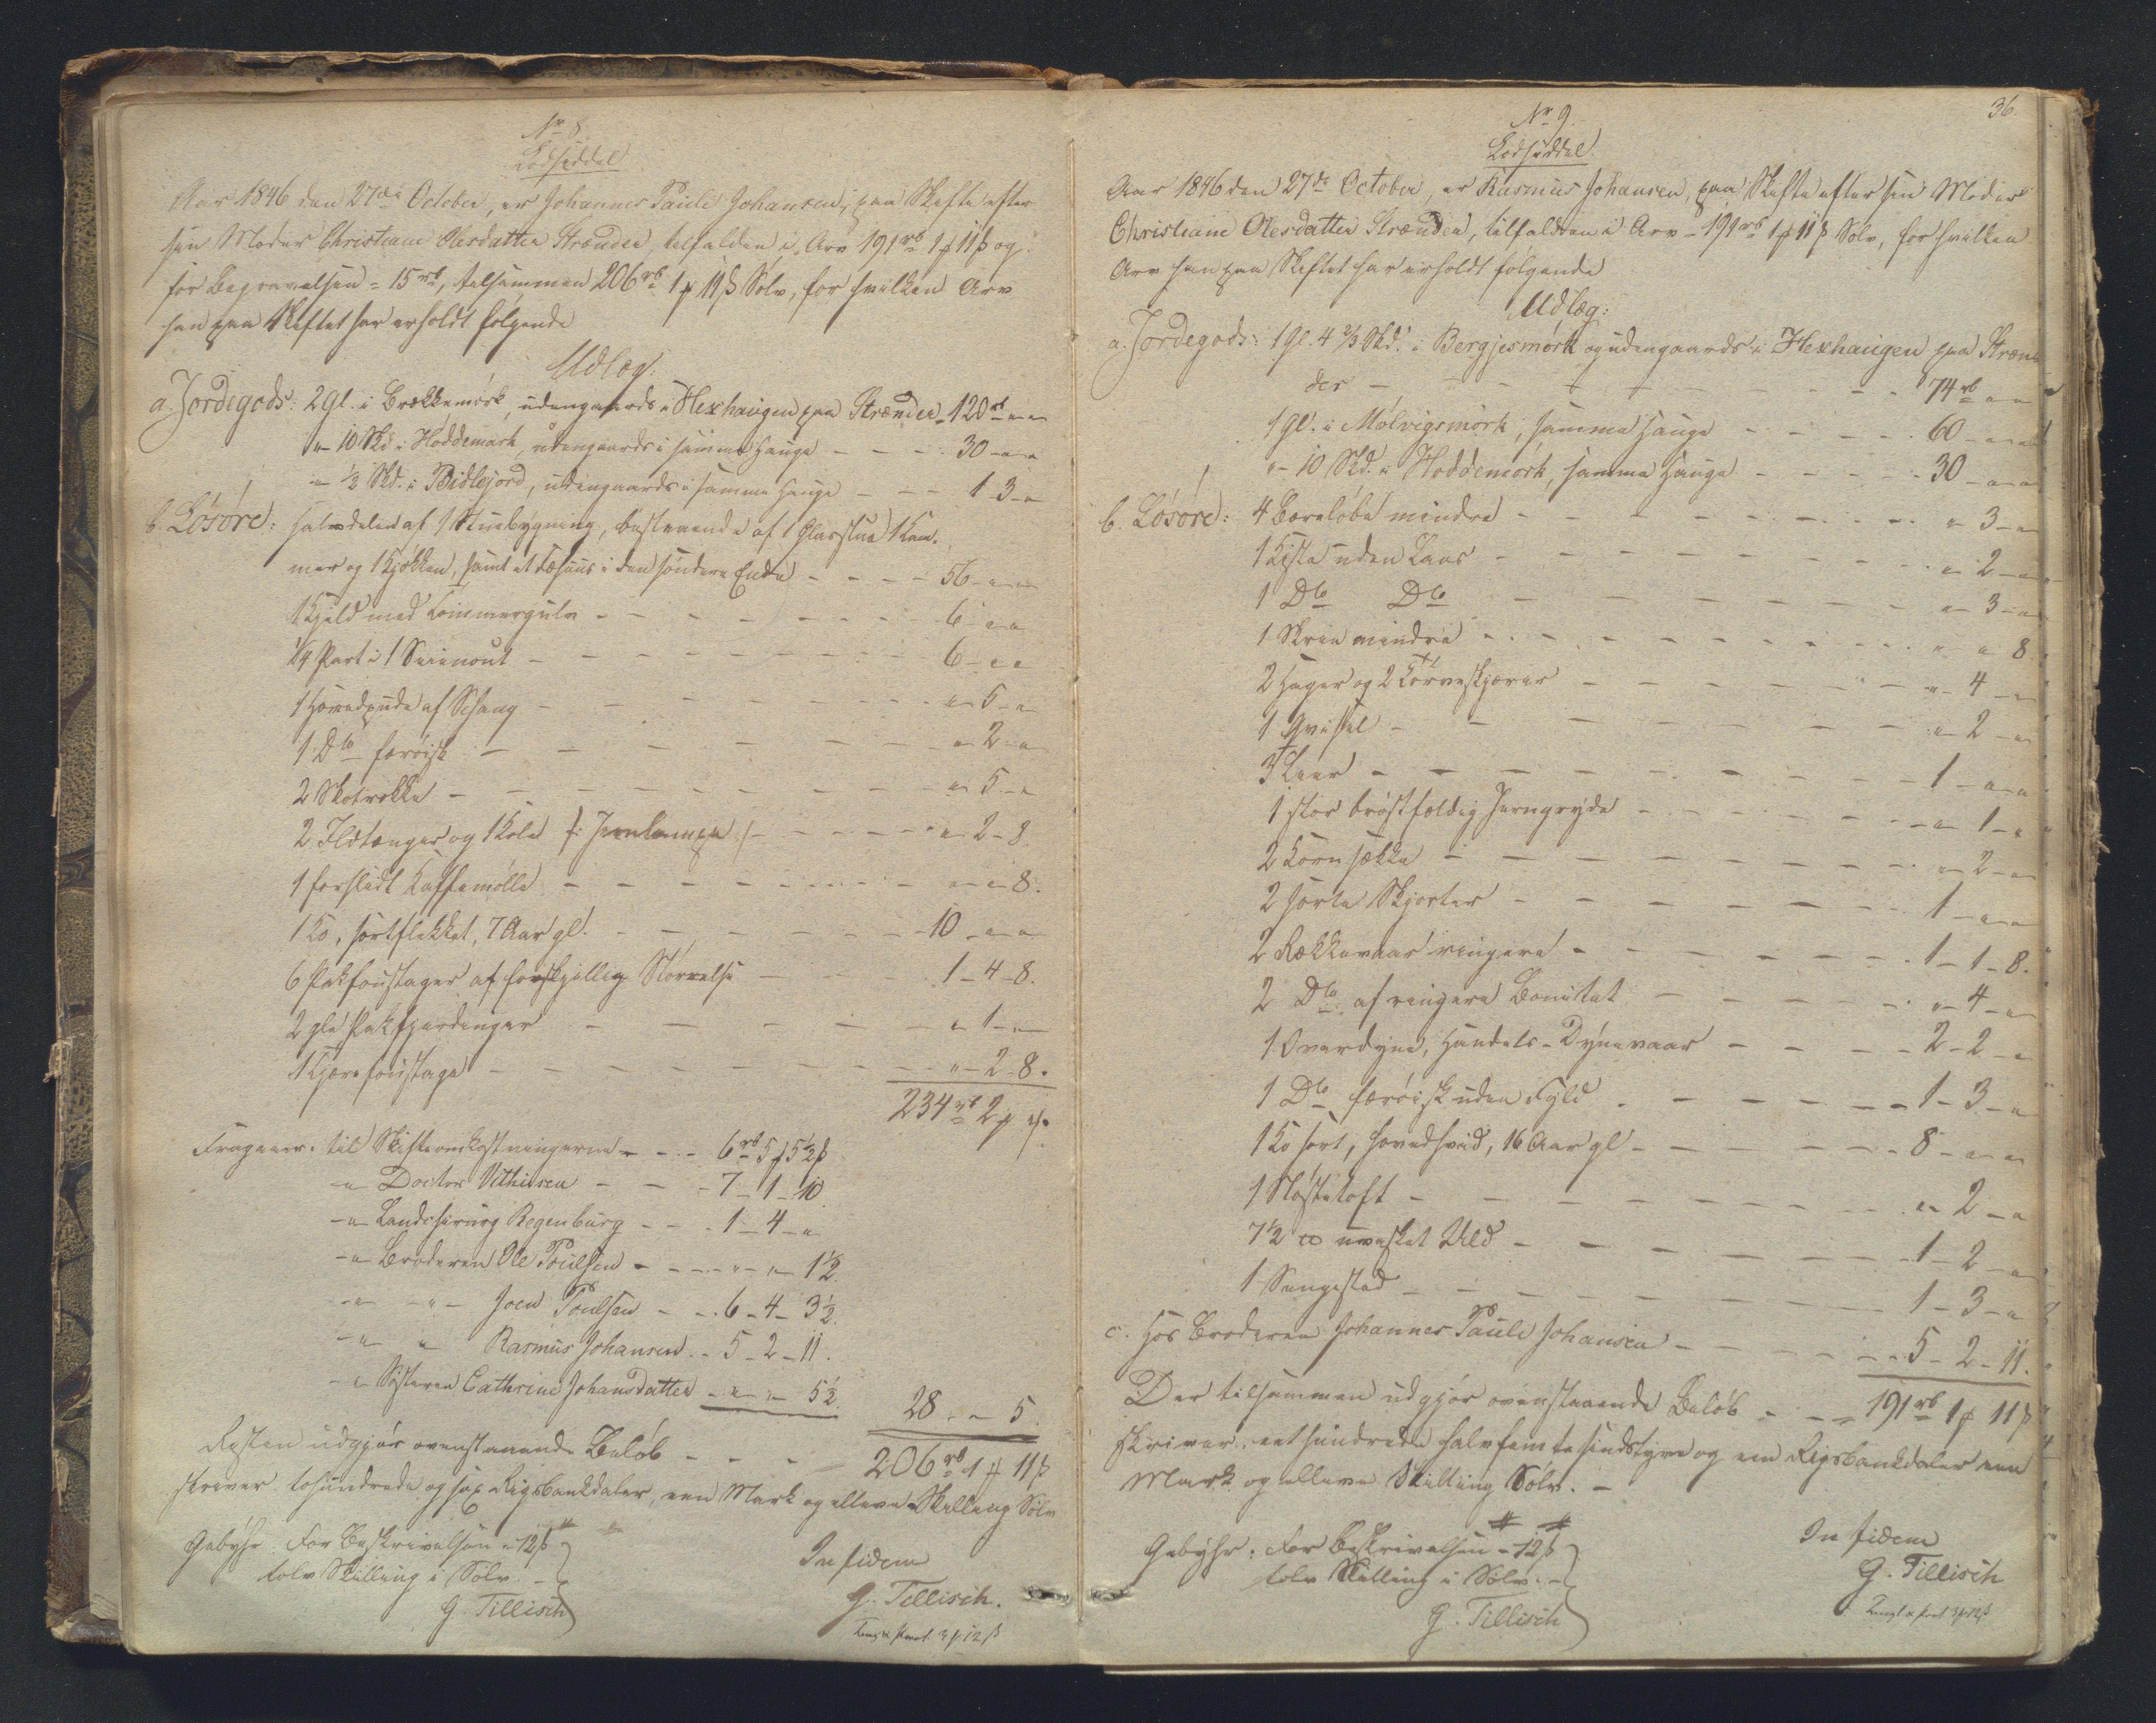 No 8.
Lodseddel
Aar 1846 den 27de October, er Johannes Pauli Johansen, paa Skifte efter
sin Moder Christiane Olesdatter Strænder, tilfalden i Arv 191 rb 1 ₰ 11 ß og
for Begravelsen = 15 rb, tilsammen 206 rb 1 ₰ 11 ß Sølv, for hvilken Arv
han paa Skiftet har erholdt følgende
Udlæg:
a. Jordegods: 2 Gl. i Brekkemørk, udengaards i Hexhaugen paa Strænder 120 rb " "
" 10 Skd i Hoddemørk, udengaards i samme Hauge - - - 30 - " "
" ½ Skd. i Bidlejord, udengaards i samme Hauge - - - 1 - 3 - "
b. Lösöre: Halvdelen af 1 Stuebygning, bestaaende af 1 Glasstue, 1 Kam-
mer og 1 Kjøkken, samt et Fæhuus i den søndere Ende - - - 56 - " "
1 Hjeld med Tømmergulv - - - 6 - " "
¼ Part i 1 Snuenout - - - 6 - " "
1 Hovedpude af Sehang - - - " 5 - "
1 Do færøisk - - - " 2 - "
2 Skotrokke - - - " 5 - "
2 Ildtænger og 1 Kole /: Jernlampe :/ - - - " 2 - 8
1 forslidt Kaffemølle - - - " " 8.
1 Ko, sortflekket, 7 Aar gl. - - - 10 - " "
6 Pakfoustager af forskjellig Størrelse - - - 1 - 4 - 8.
2 gle Pakfjerdinger - - - " 1 - "
1 Tjærefoustage - - - " 2 - 8.
234 rb 2 ₰ " ß.
Fragaaer: til Skifteomkostningerne - - - 6 rb 5 ₰ 5½ ß
" Doctor Vithusen - - - 7 - 1 - 10
" Landchirurg Regenburg - - - 1 - 4 - "
" Broderen Ole Poulsen - - - " " 1½.
" " Joen Poulsen - - - 6 - 4 - 3½
" " Rasmus Johansen - - 5 - 2 - 11.
" Søsteren Cathrine Johansdatter - " " 5½. 28 - " 5.
Resten udgjør ovenstaaende Beløb - - - 206 rb 1 ₰ 11 ß
skriver tohundrede og sex Rigsbankdaler, een Mark og elleve Skilling Sølv
Gebyhr: For Beskrivelsen = 12 ß
tolv Skilling i Sølv. -
G. Tillisch
In fidem
G. Tillisch.
36.
No 9.
Lodseddel.
Aar 1846 den 27de October, er Rasmus Johansen, paa Skifte efter sin Moder
Christiane Olesdatter Strænder, tilfalden i Arv - 191 rb 1 ₰ 11 ß Sølv, for hvilken
Arv han paa Skiftet har erholdt følgende
Udlæg:
a. Jordegods: 1 Gl. 4 ⅔ Skd. i Bergjesmørk udengaards i Hexhaugen paa Stræn-
der - - - 74 rb " "
1 Gl. i Mølvigsmørk, samme Hauge - - - 60 - " "
" 10 Skd. i Hoddemørk, samme Hauge - - - 30 - " "
b. Lösöre: 4 Bæreløbe mindre - - - " 3 - "
1 Kiste uden Laas - - - " 2 - "
1 Do Do - - - " 3 - "
1 Skrin mindre - - - " " 8.
2 Hager og 2 Torveskjærer - - - " 4 - "
1 Qvistel - - - " 2 - "
3 Leer - - - 1 - " "
1 stor brøstfældig Jerngryde - - - " 1 - "
2 Kornsække - - - " 2 - "
2 sorte Skjorter - - - 1 - " "
2 Rækkevaar ringere - - - 1 - 1 - 8.
2 Do af ringere Bonitet - - - " 4 - "
1 Overdyne, Handels-Dynevaar - - - 2 - 2 - "
1 Do færøisk uden Fyld - - - 1 - 3 - "
1 Ko sort, hovedhvid, 16 Aar gl - - - 8 - " "
1 Nøstetoft - - - " 2 - "
7½ ℔ uvasket Uld - - - 1 - 2 - "
1 Sengested - - - 1 - 3 - "
c. Hos Broderen Johannes Pauli Johansen - - - 5 - 2 - 11.
Der tilsammen udgjør ovenstaaende Beløb - - - 191 rb 1 ₰ 11 ß
skriver eethundrede halvfemtesindstyve og een Rigsbankdaler een
Mark og elleve Skilling Sølv. -
Gebyhr: For Beskrivelsen = 12 ß
tolv Skilling i Sølv. -
G. Tillisch
In fidem
G. Tillisch